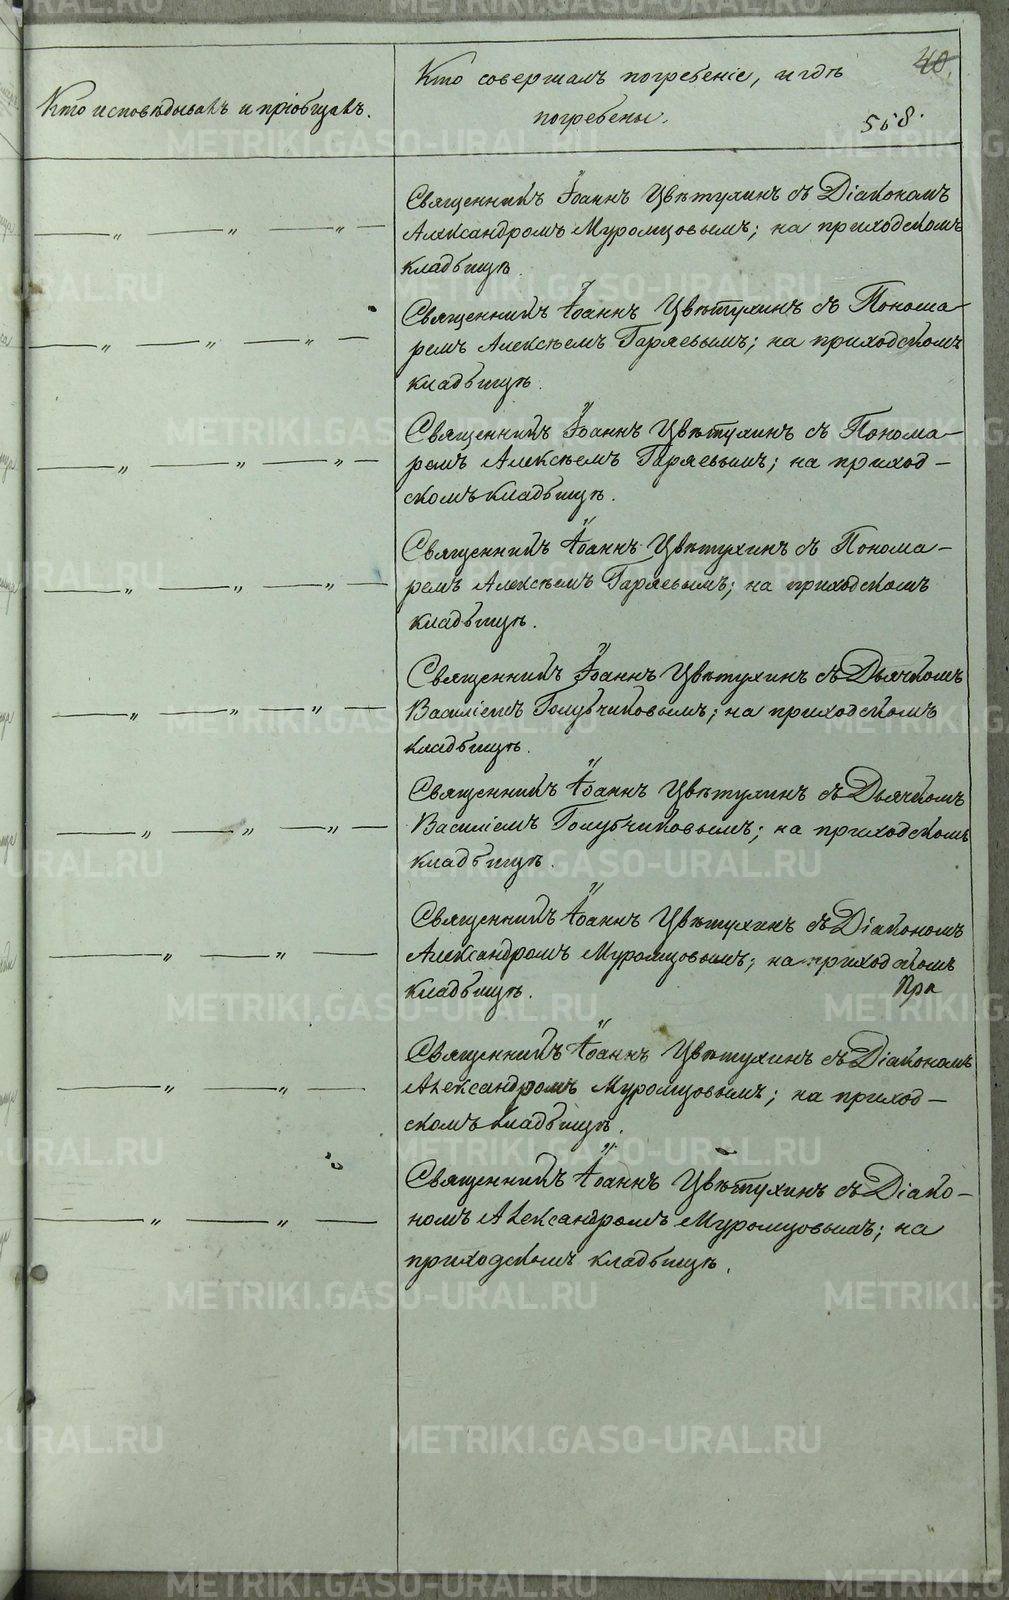 40.
558.
Кто исповѣдывалъ и пріобщалъ.
Кто совершалъ погребеніе, и гдѣ
погребены.
Священникъ Іоаннъ Цвѣтухинъ съ Діакономъ
— „ — „ — „ —
Александромъ Муромцовымъ; на приходскомъ
кладбищѣ.
Священникъ Іоаннъ Цвѣтухинъ съ Понома-
— „ — „ — „ —
ремъ Алексѣемъ Гаряевымъ; на приходскомъ
кладбищѣ.
Священникъ Іоаннъ Цвѣтухинъ съ Понома-
— „ — „ — „ —
ремъ Алексѣемъ Гаряевымъ; на приход-
скомъ кладбищѣ.
Священникъ Іоаннъ Цвѣтухинъ съ Понома-
— „ — „ — „ —
ремъ Алексѣемъ Гаряевымъ; на приходскомъ
кладбищѣ.
Священникъ Іоаннъ Цвѣтухинъ съ Дьячкомъ
— „ — „ — „ —
Василіемъ Голубчиковымъ; на приходскомъ
кладбищѣ.
Священникъ Іоаннъ Цвѣтухинъ съ Дьячкомъ
— „ — „ — „ —
Василіемъ Голубчиковымъ; на приходскомъ
кладбищѣ.
Священникъ Іоаннъ Цвѣтухинъ съ Діакономъ
— „ — „ —
Александромъ Муромцовымъ; на приходскомъ
кладбищѣ.
Священникъ Іоаннъ Цвѣтухинъ съ Діакономъ
— „ — „ —
Александромъ Муромцовымъ; на приход-
скомъ кладбищѣ.
Священникъ Іоаннъ Цвѣтухинъ съ Діако-
— „ — „ —
номъ Александромъ Муромцовымъ; на
приходскомъ кладбищѣ.
METRIKI.GASO-URAL.RU